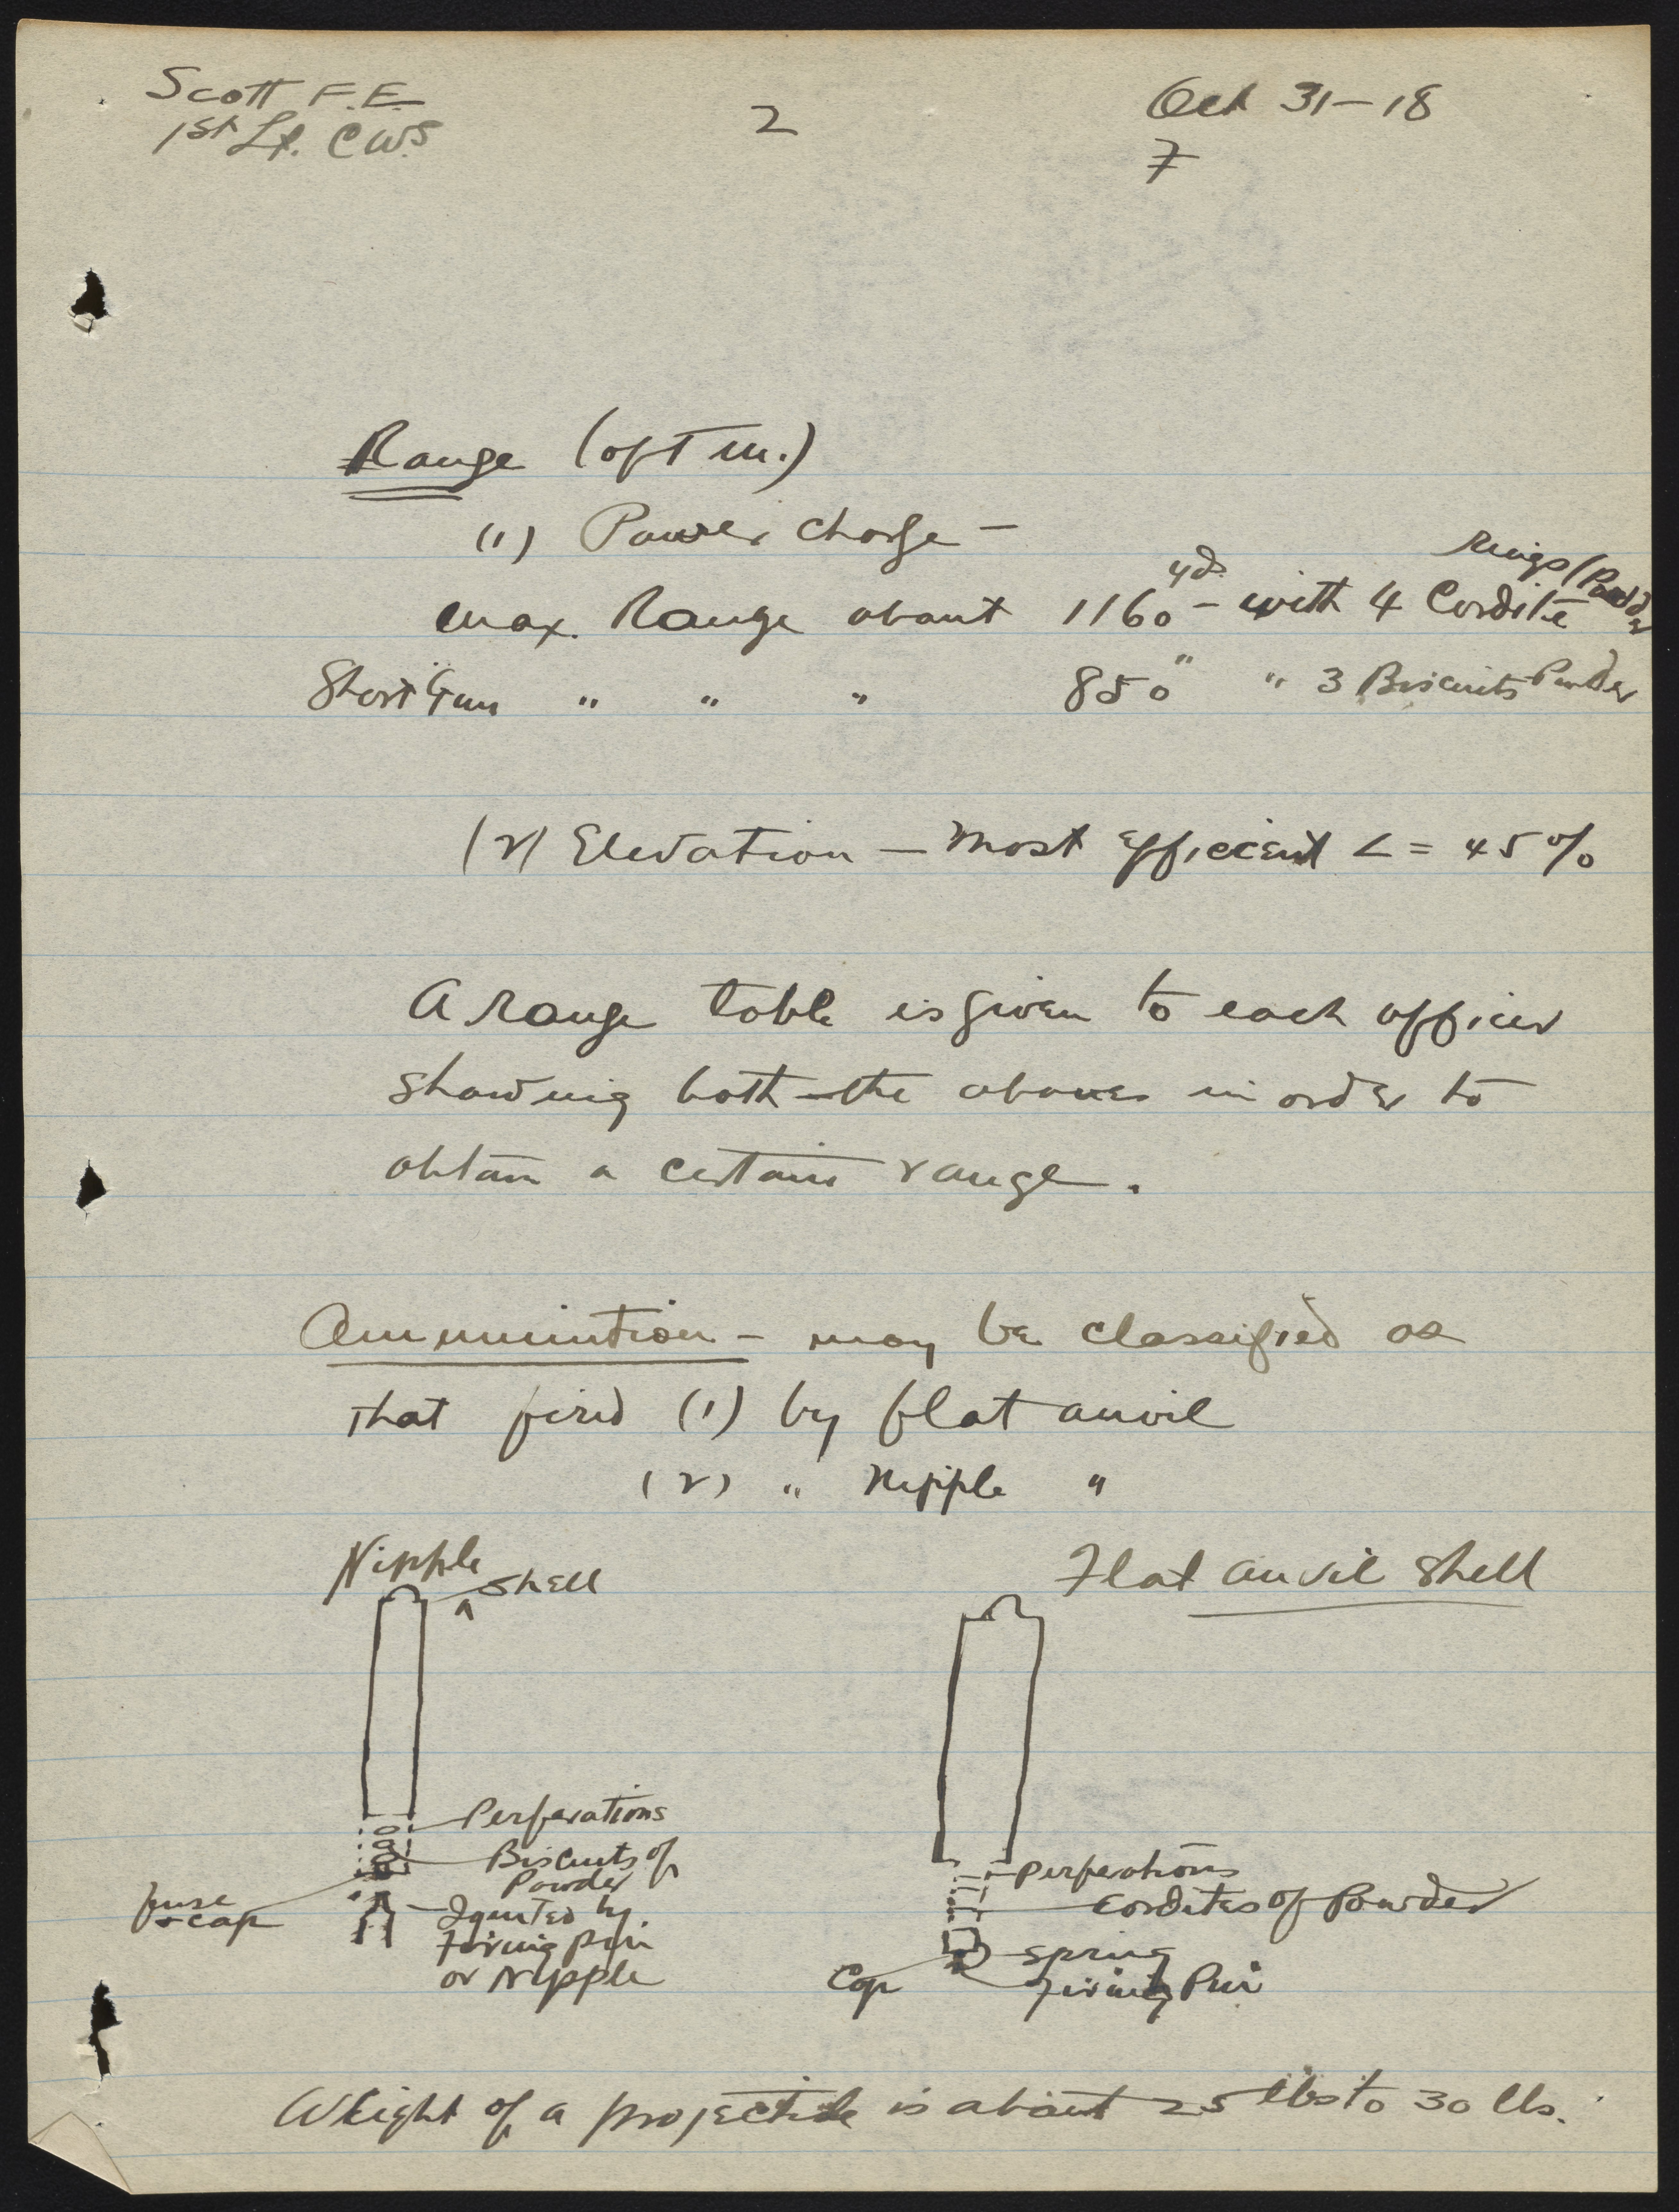 Scott F.E.
1st Lt. C.W.S
2
Oct 31-18
7
Range (of T m.)
(1) Power Charge -
max. Range about 1160 yd. - with 4 Cordite Rings (Powder
Short Gun " " " 850 " " 3 Biscuits Powder
(2) Elevation - Most efficient < = 45%
A Range table is given to each officer
showing both the above in order to
obtain a certain range.
Ammunition - may be classified as
that fired (1) by flat anvil
(2) " Nipple "
Nipple Shell
Flat anvil shell
Perforations
Biscuits of
Powder
fuse
+ cap
Ignited by
Firing pin
or Nipple
Perforations
Cordites of Powder
Spring
Cap
Firing Pin
Weight of a projectile is about 25 lbs to 30 lbs.